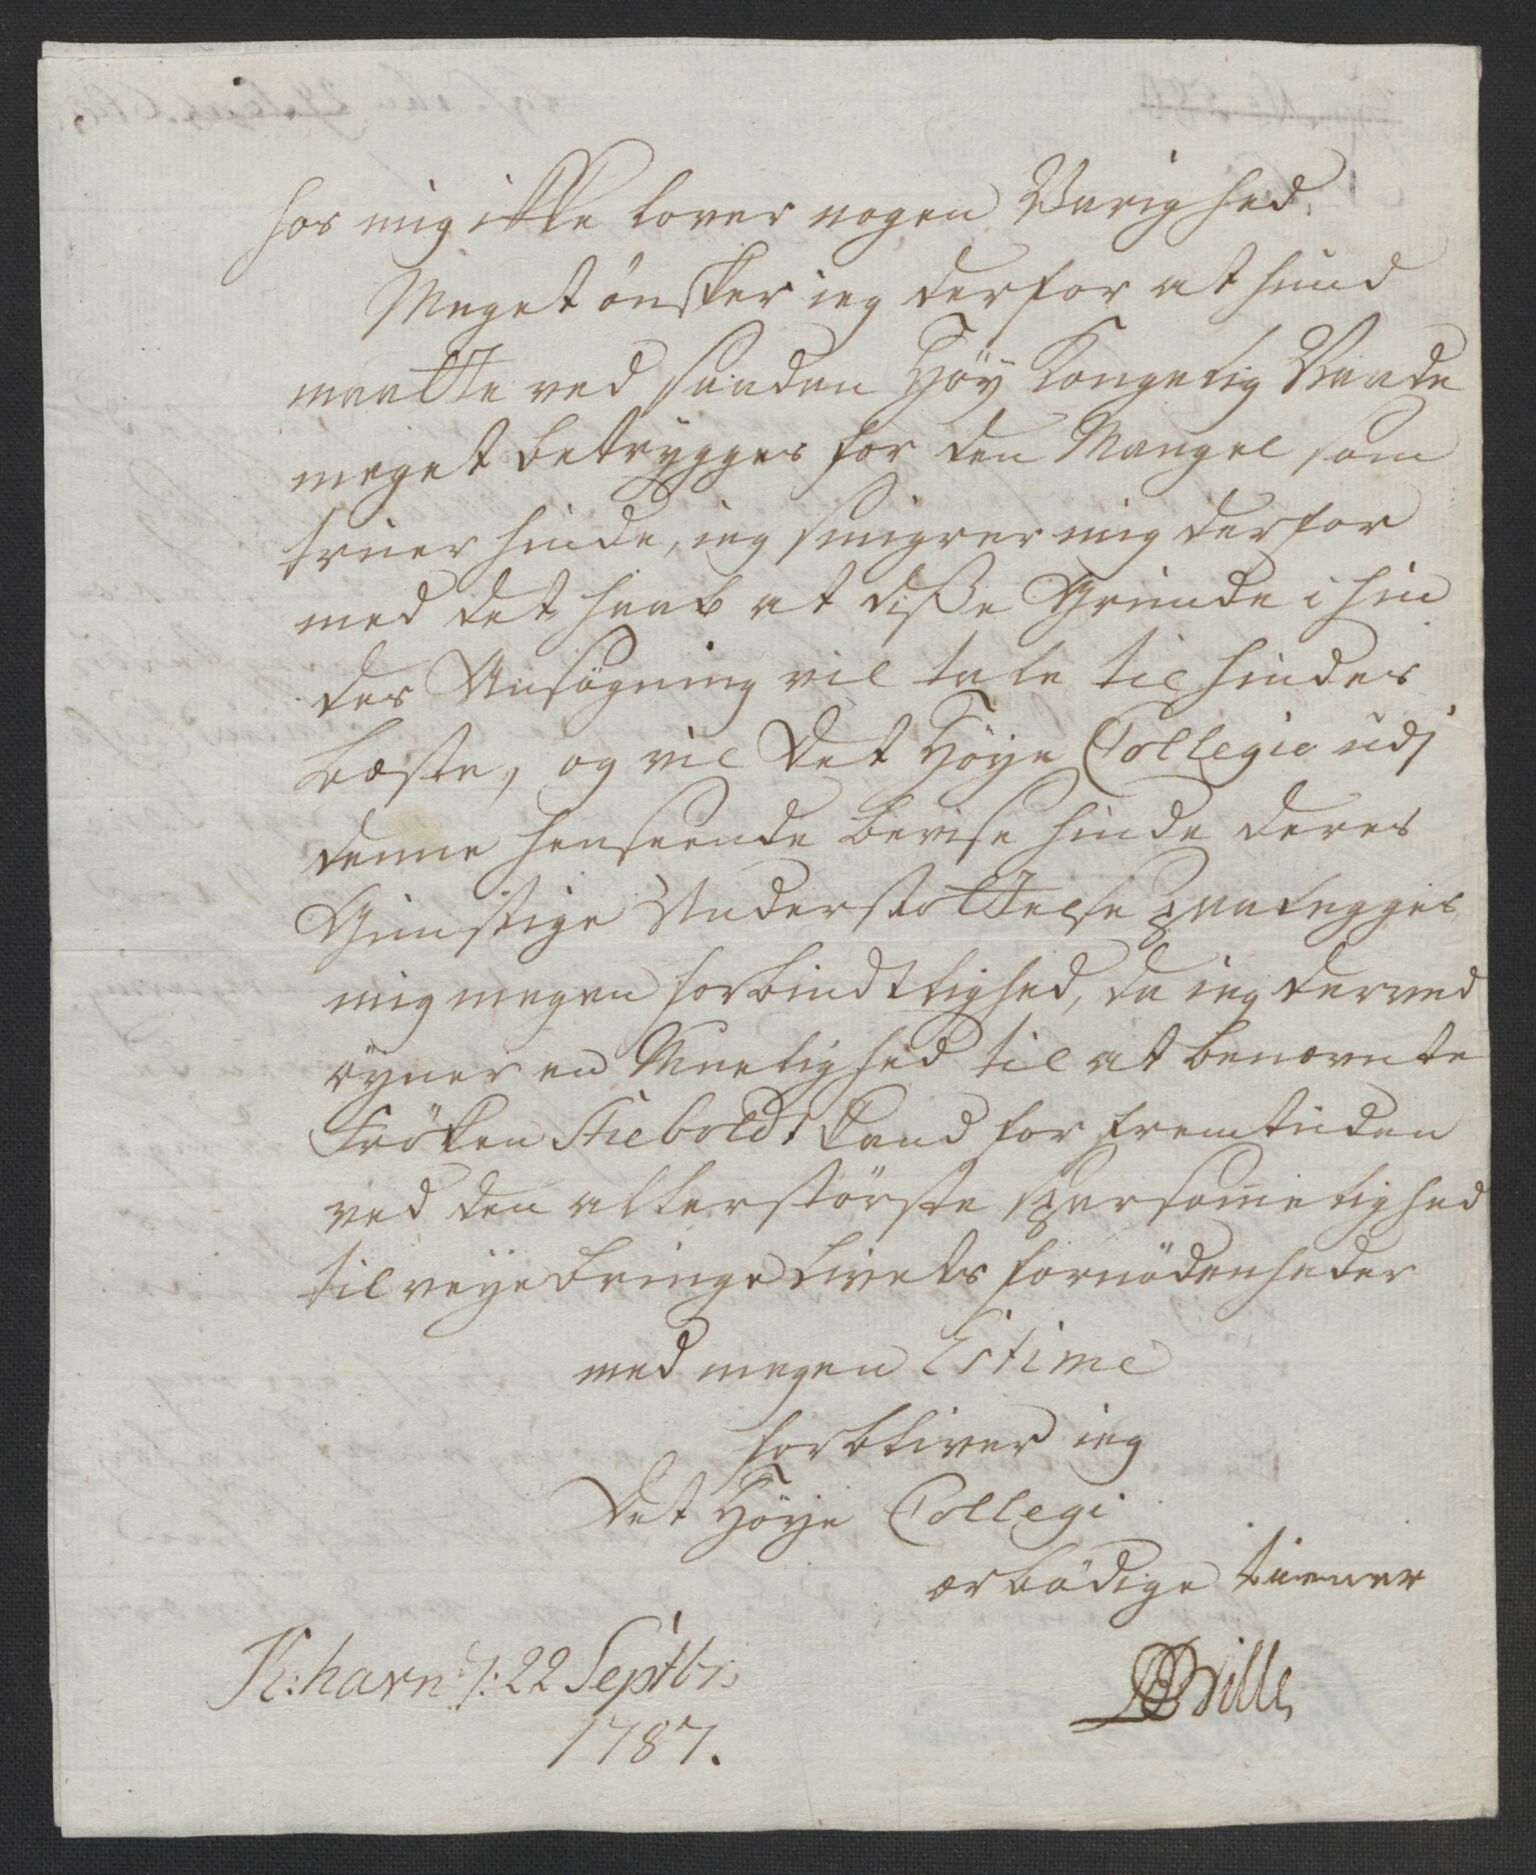 hos mig ikke lover nogen Varighed,
Meget önsker ieg derfor at hund
maatte ved saadan Høy Kongelig Naade
meget betrygges for den Mangel som
truer hinde, ieg smigrer mig derfor
med det haab at disse Grunde i hin
des Ansøgning vil tale til hindes
bæste, og vil Det Høye Collegio udj
denne henseende bevise hinde deres
Gunstige Understøttelse paalegges
mig megen forbindtlighed, da ieg derved
øyner en Muelighed til at benævnte
Frøken Stieboldt kand for fremtiden
ved den allerstörste sparsommelighed
tilveye bringe Livets fornødenheder
med megen Estime
forbliver ieg
Det Høye Collegi
ærbødige tiener
K:havn d: 22 Septbr:
1787.
Bille